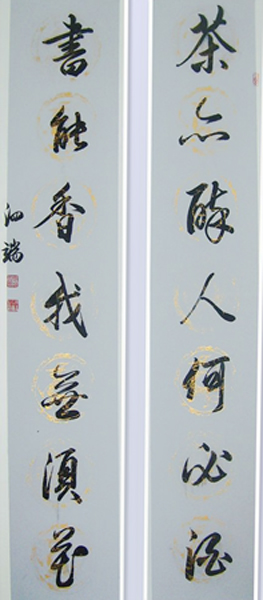 茶亦醉人何必酒
書能香我無須花